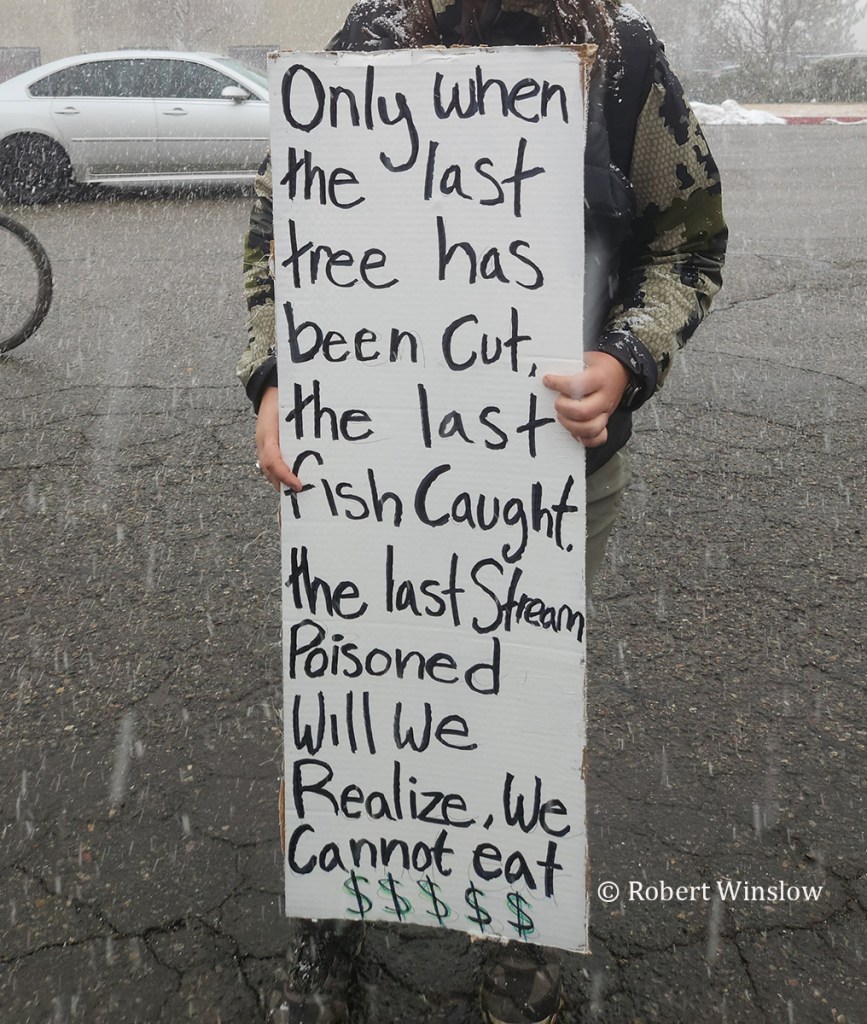 Only when
the last
tree has
been Cut,
the last
fish Caught.
the last Stream
Poisoned
Will We
Realize, We
Cannot eat
$$$$$
© Robert Winslow